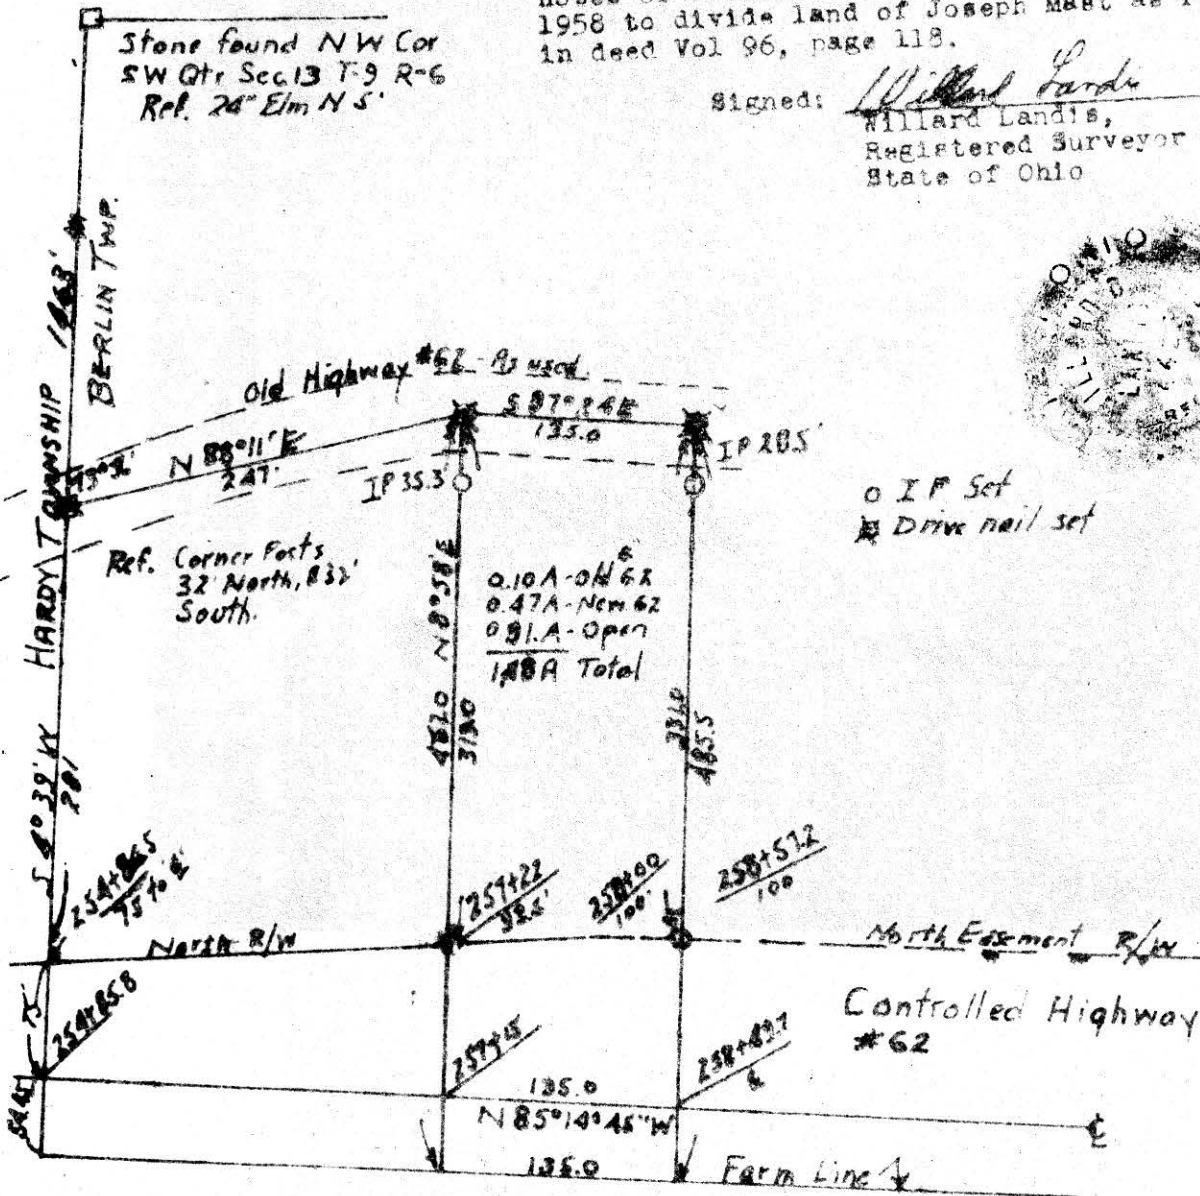 1958 to divide land of Joseph Mast as
in deed Vol 96, page 118.
Signed: Willard Landis
Willard Landis,
Registered Surveyor
State of Ohio
Stone found N W Cor
SW Qtr Sec 13 T-9 R-6
Ref. 24" Elm N 5'
BERLIN TWP.
HARDY TOWNSHIP
Old Highway #62 - As used
135.0
N 88°11' E
247'
IP 35.3'
IP 28.5'
o I P Set
Drive nail set
Ref. Corner Posts
32' North, & 32'
South.
N 8°58' E
0.10A - Old 62
0.47A - New 62
0.91.A - Open
1.48A Total
485.5
S 4° 39' W
North R/W
257+22
258+00
100'
258+57.2
100
North Easement R/W
75'
254+85.8
Controlled Highway
#62
135.0
N 85°14'45"W
135.0
Farm Line